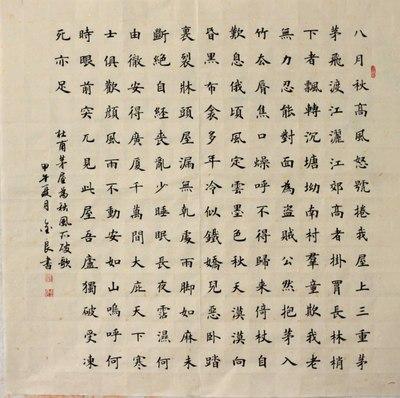 八月秋高風怒號捲我屋上三重茅
茅飛渡江灑江郊高者掛罥長林梢
下者飄轉沉塘坳南村羣童欺我老
無力忍能對面為盜賊公然抱茅入
竹去脣焦口燥呼不得歸來倚杖自
歎息俄頃風定雲墨色秋天漠漠向
昏黑布衾多年冷似鐵嬌兒惡卧踏
裏裂牀頭屋漏無乾處雨腳如麻未
斷絕自經喪亂少睡眠長夜霑濕何
由徹安得廣厦千萬間大庇天下寒
士俱歡顏風雨不動安如山嗚呼何
時眼前突兀見此屋吾廬獨破受凍
死亦足
杜甫茅屋為秋風所破歌
甲午夏月良書